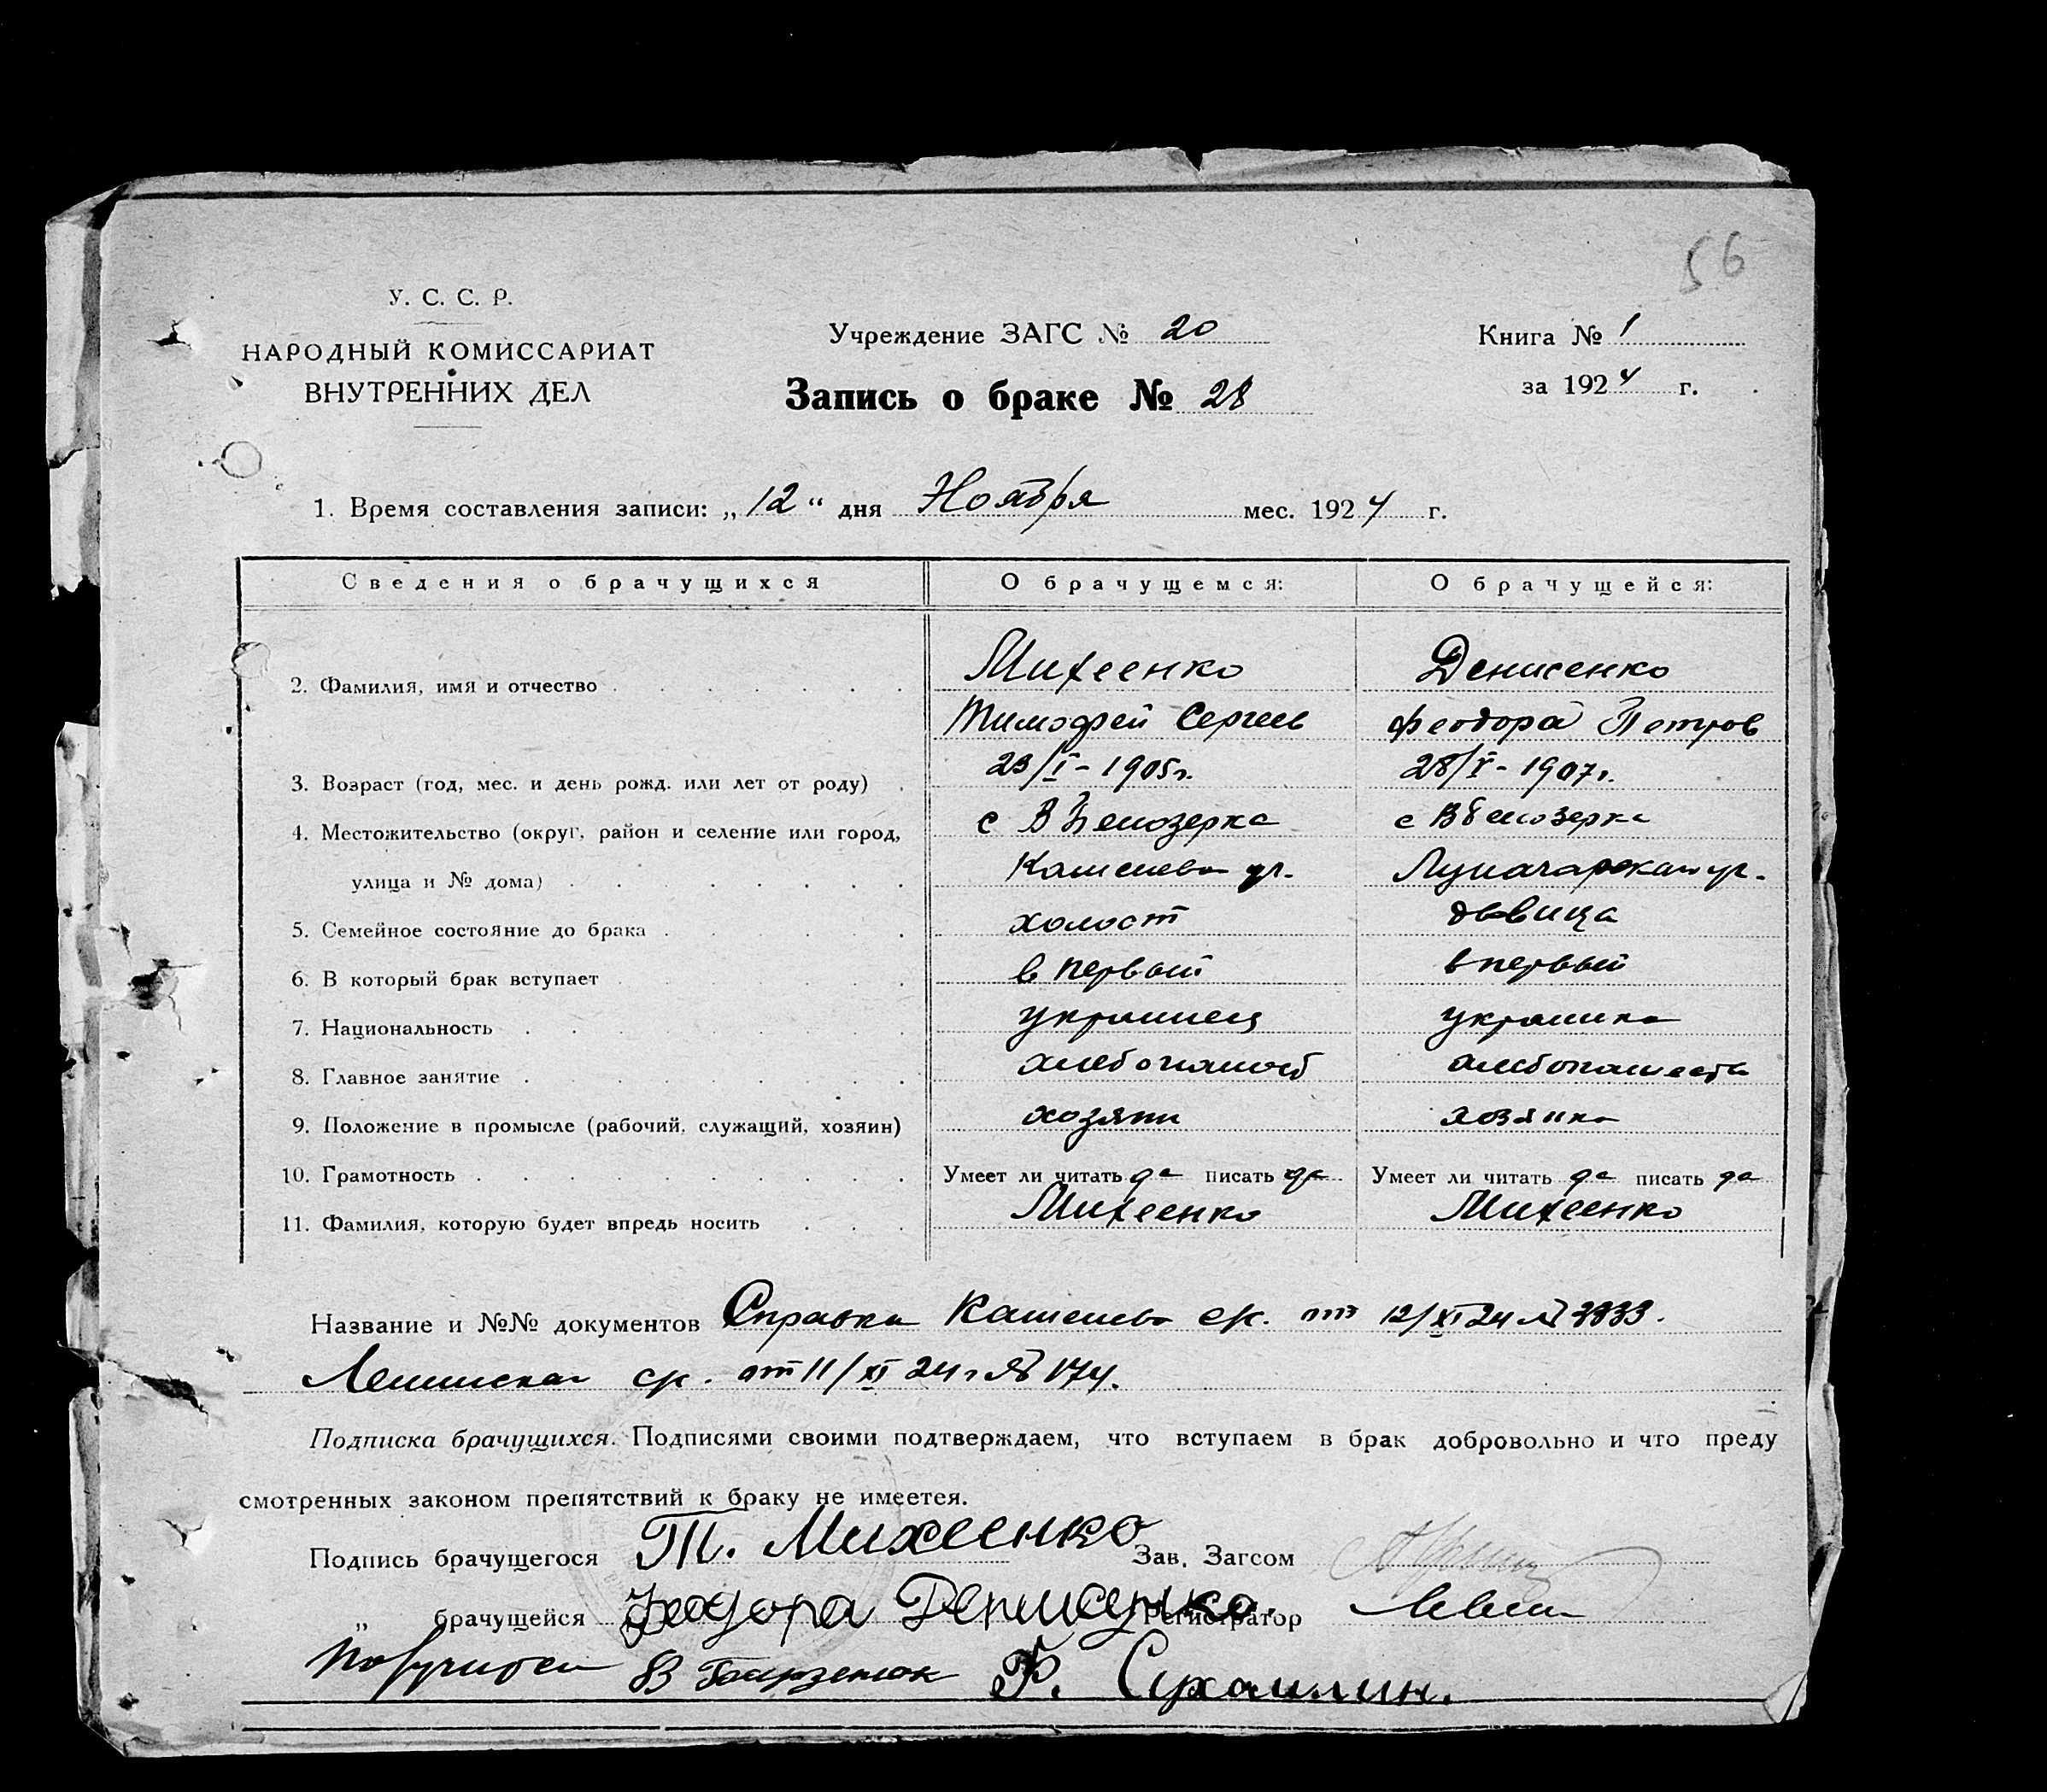 56
У. С. С. Р.
НАРОДНЫЙ КОМИССАРИАТ
ВНУТРЕННИХ ДЕЛ
Учреждение ЗАГС № 20
Запись о браке № 28
Книга № 1
за 1924 г.
1. Время составления записи: „12“ дня Ноября мес. 1924 г.
Сведения о брачущихся О брачущемся: О брачущейся:
2. Фамилия, имя и отчество Михеенко Денисенко
Тимофей Сергеев Феодора Петров
3. Возраст (год, мес. и день рожд. или лет от роду) 23/I - 1905 г. 28/V - 1907 г.
4. Местожительство (округ, район и селение или город, с В Белозерка с В Белозерка
улица и № дома) ул. Луначарская ул.
5. Семейное состояние до брака холост девица
6. В который брак вступает в первый в первый
7. Национальность украинец украинка
8. Главное занятие хлебопашест хлебопашеств
9. Положение в промысле (рабочий, служащий, хозяин) хозяин хозяйка
10. Грамотность Умеет ли читать да писать да Умеет ли читать да писать да
11. Фамилия, которую будет впредь носить Михеенко Михеенко
Название и №№ документов Справка ср. от 12/XI 24 № 3833.
Ленинская ср. от 11/XI 24 г № 174.
Подписка брачущихся. Подписями своими подтверждаем, что вступаем в брак добровольно и что преду
смотренных законом препятствий к браку не имеетея.
Подпись брачущегося Т. Михеенко Зав. Загсом
„ брачущейся Феодора Денисенко. Регистратор Левин
В Ф. Сухомлин.